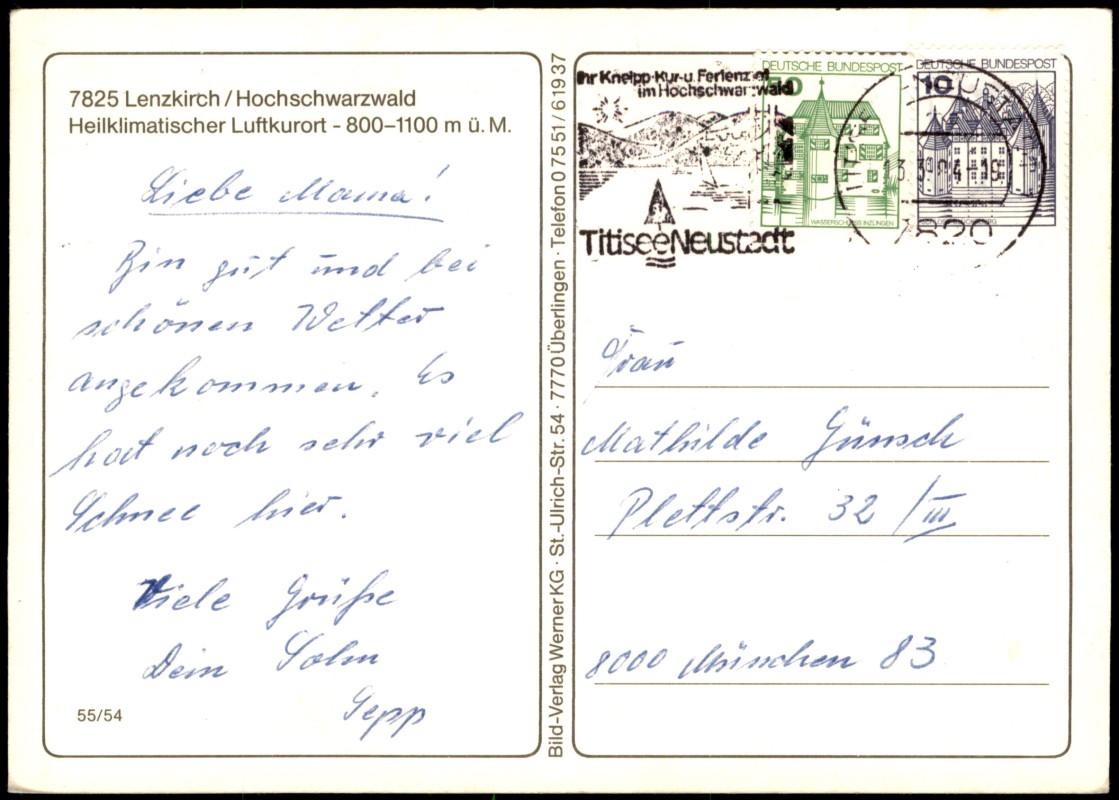 7825 Lenzkirch / Hochschwarzwald
Heilklimatischer Luftkurort - 800–1100 m ü. M.
Liebe Mama!
Bin gut und bei
schönen Wetter
angekommen. Es
hat noch sehr viel
Schnee hier.
Viele Grüße
Dein Sohn
Sepp
55/54
Bild-Verlag Werner KG · St.-Ulrich-Str. 54 · 7770 Überlingen · Telefon 0 75 51 / 6 19 37
Ihr Kneipp-Kur-u. Ferienziel
im Hochschwarzwald
Titisee Neustadt
DEUTSCHE BUNDESPOST
50
WASSERSCHLOSS INZLINGEN
DEUTSCHE BUNDESPOST
10
7820
Frau
Mathilde Günsch
Plettstr. 32 / III
8000 München 83